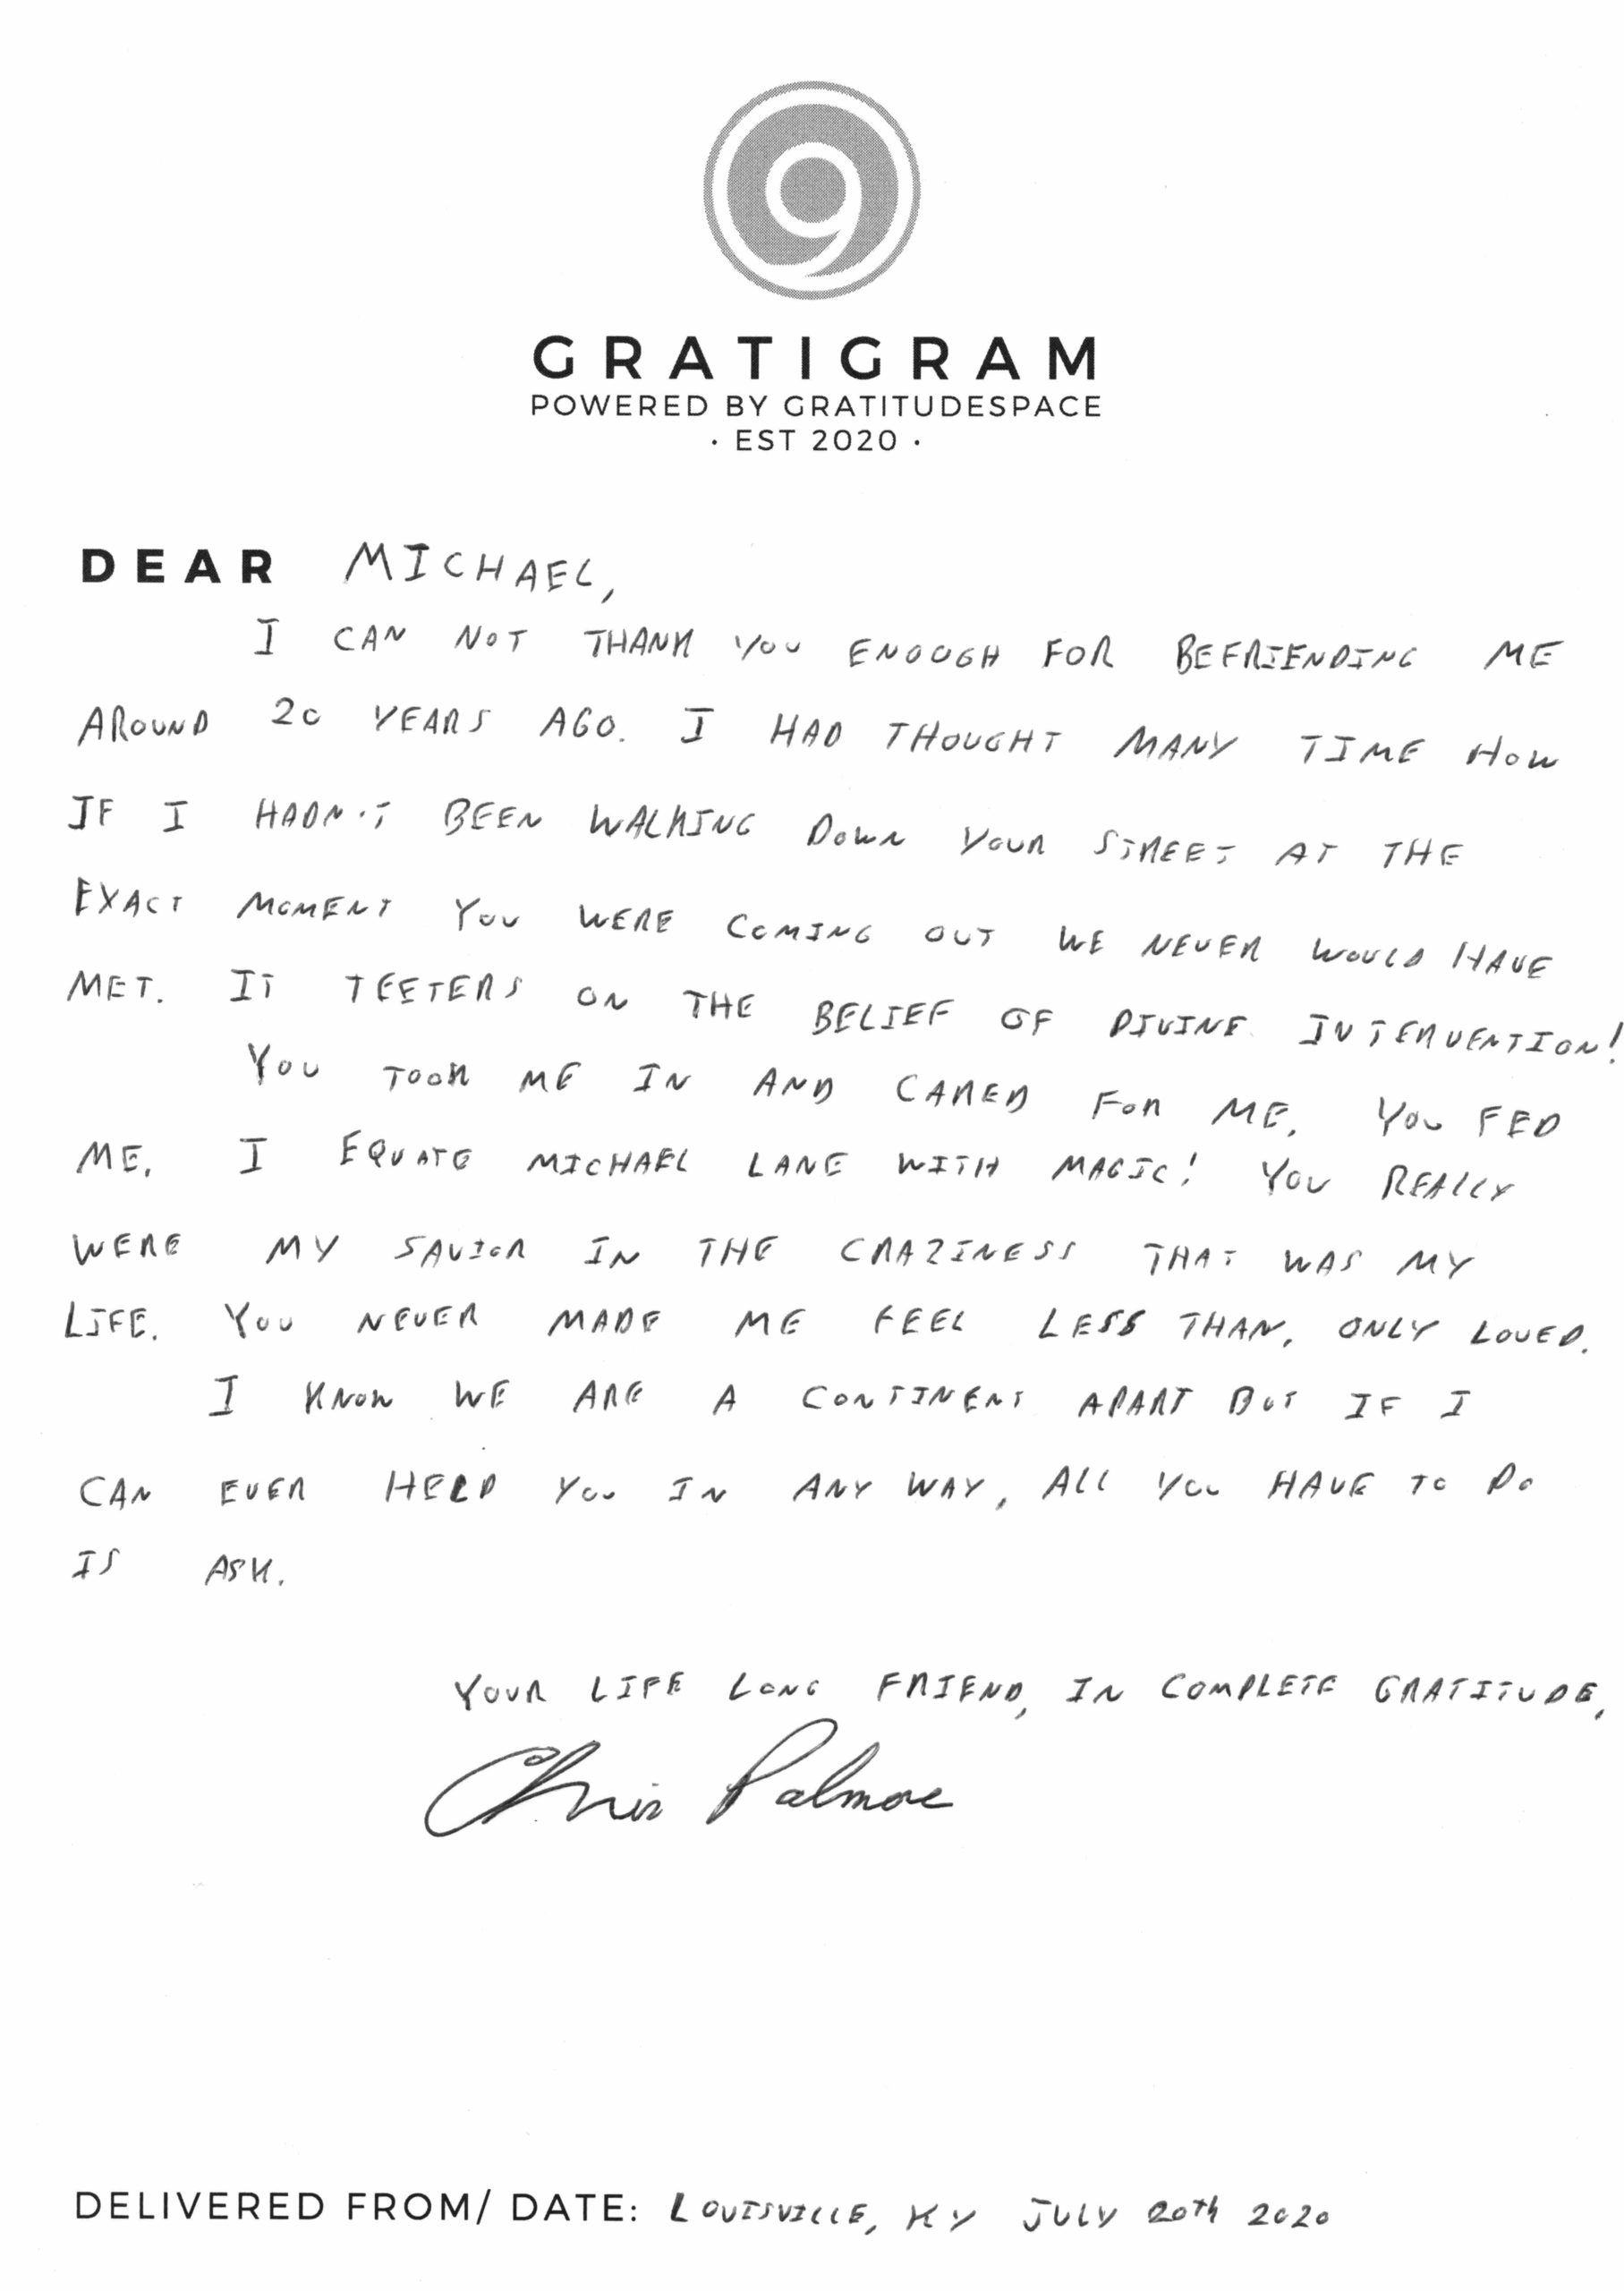 9
GRATIGRAM
POWERED BY GRATITUDESPACE
· EST 2020 ·
DEAR MICHAEL,
I CAN NOT THANK YOU ENOUGH FOR BEFRIENDING ME
AROUND 20 YEARS AGO. I HAD THOUGHT MANY TIME HOW
IF I HADN'T BEEN WALKING DOWN YOUR STREET AT THE
EXACT MOMENT YOU WERE COMING OUT WE NEVER WOULD HAVE
MET. IT TEETERS ON THE BELIEF OF DIVINE INTERVENTION!
YOU TOOK ME IN AND CARED FOR ME. YOU FED
ME. I EQUATE MICHAEL LANE WITH MAGIC! YOU REALLY
WERE MY SAVIOR IN THE CRAZINESS THAT WAS MY
LIFE. YOU NEVER MADE ME FEEL LESS THAN, ONLY LOVED.
I KNOW WE ARE A CONTINENT APART BUT IF I
CAN EVER HELP YOU IN ANY WAY, ALL YOU HAVE TO DO
IS ASK.
YOUR LIFE LONG FRIEND, IN COMPLETE GRATITUDE,
Chris Palmore
DELIVERED FROM/ DATE: LOUISVILLE, KY JULY 20th 2020